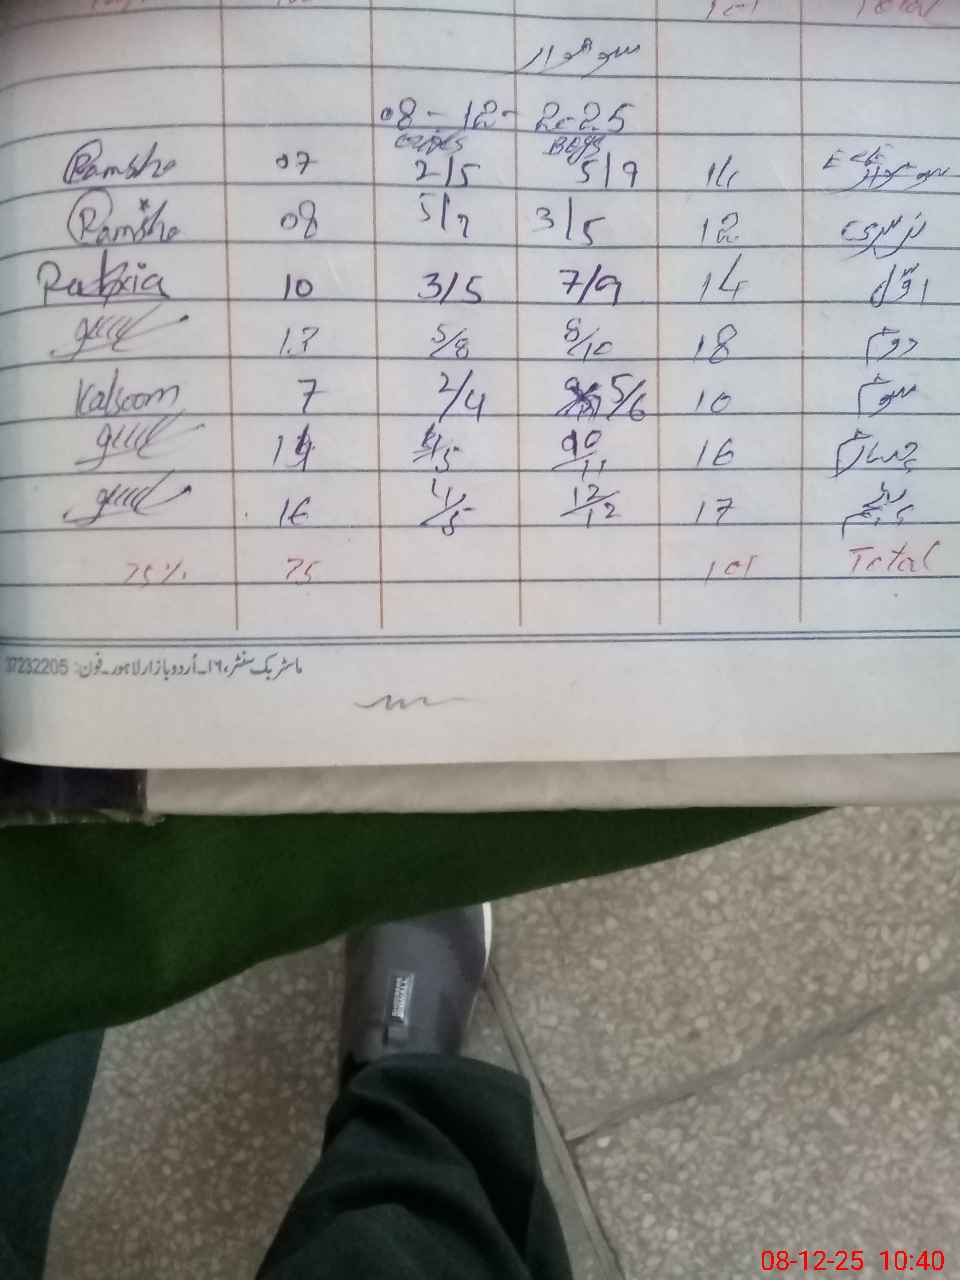 Total
سوموار
08-12-2025
Girls Boys
Ramsha 07 2/5 5/9 14 ECE
Ramsha 08 5/7 3/5 12 نرسری
Rabxia 10 3/5 7/9 14 اوّل
13 5/8 8/10 18 دوئم
Kalsoom 7 2/4 5/6 10 سوئم
14 4/5 10/11 16 چہارم
16 4/5 12/12 17 پنجم
75% 75 101 Total
ماسٹر بک سنٹر، ۱۶۔اُردو بازار لاہور۔ فون: 37232205
08-12-25 10:40